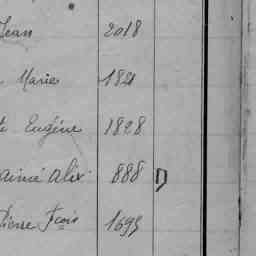 Jean 2018
Marie 1821
Eugéne 1828
aimé Alix 888 D
Pierre Fçois 1695